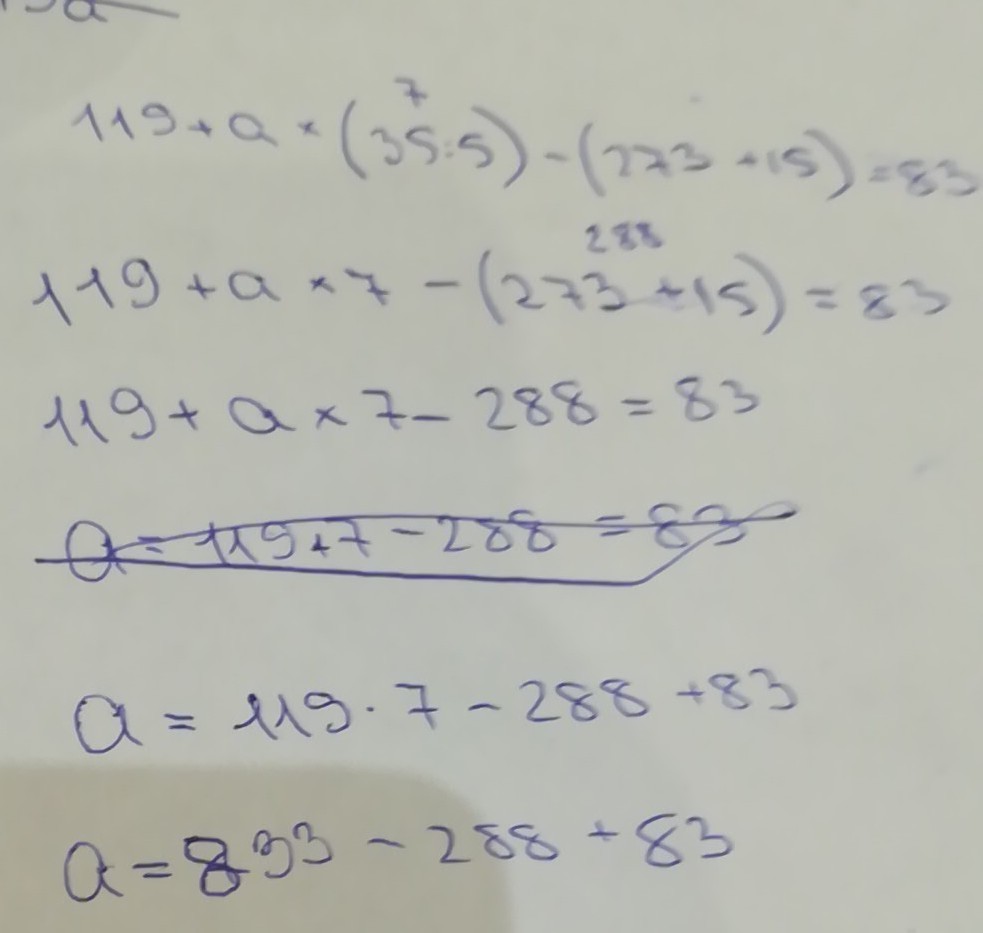 7
119 + a × (35:5) - (273 + 15) = 83
288
119 + a × 7 - (273 + 15) = 83
119 + a × 7 - 288 = 83
a = 119 + 7 - 288 = 83
a = 119 · 7 - 288 + 83
a = 833 - 288 + 83